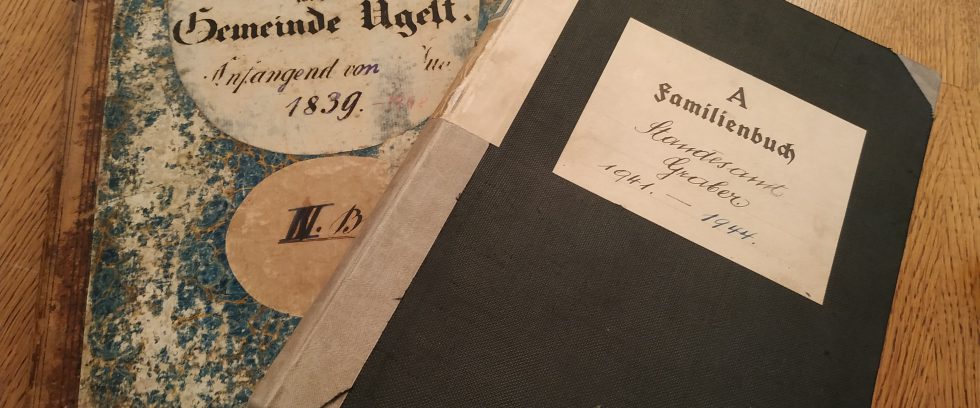 Gemeinde Ugest.
Anfangend von
1839.
II. B
A
Familienbuch
Standesamt
Graber
1941. — 1944.